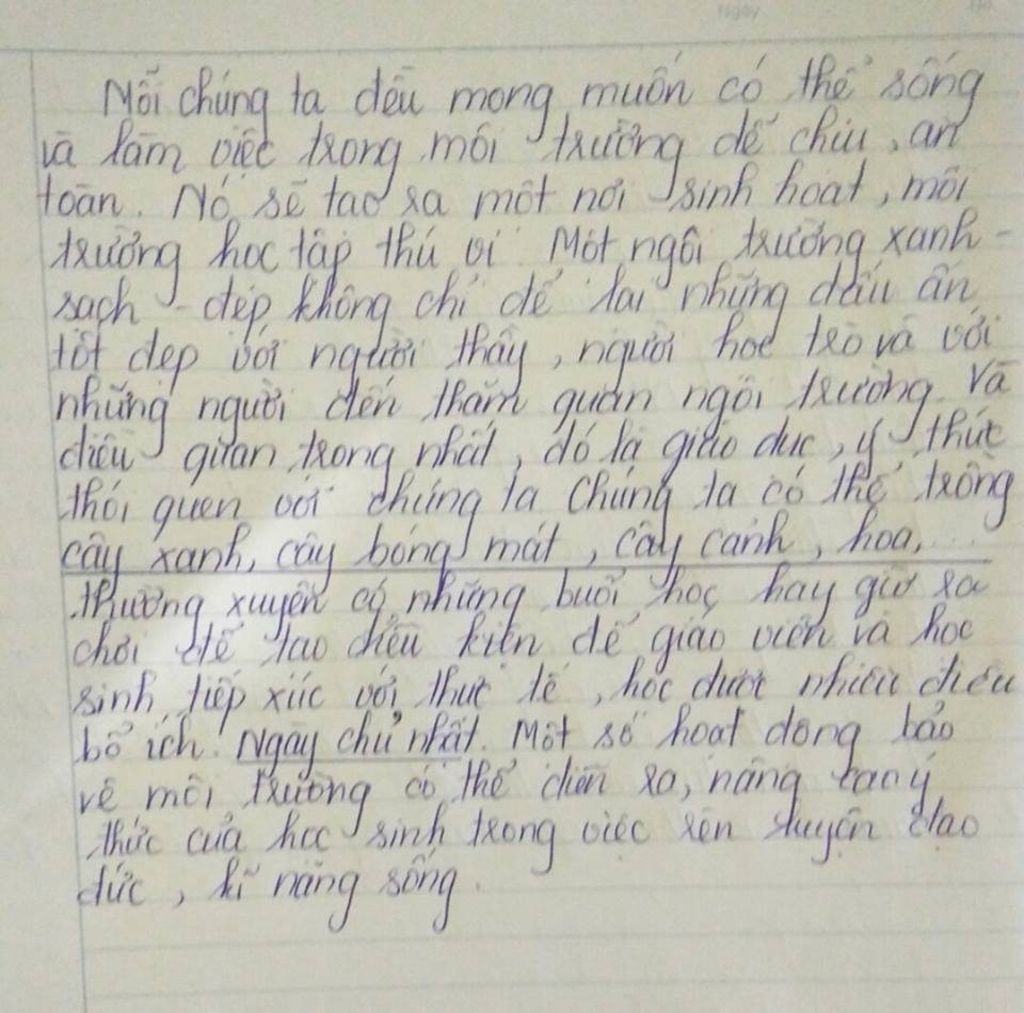 Mỗi chúng ta đều mong muốn có thể sống
và làm việc trong môi trường dễ chịu, an
toàn. Nó sẽ tạo ra một nơi sinh hoạt, môi
trường học tập thú vị. Một ngôi trường xanh -
sạch - đẹp không chỉ để lại những dấu ấn
tốt đẹp với người thầy, người học trò và với
những người đến thăm quan ngôi trường. Và
điều quan trọng nhất, đó là giáo dục, ý thức
thói quen với chúng ta Chúng ta có thể trồng
cây xanh, cây bóng mát, cây cảnh, hoa,...
thường xuyên có những buổi học hay giờ ra
chơi để tạo điều kiện để giáo viên và học
sinh tiếp xúc với thực tế, học được nhiều điều
bổ ích. Ngày chủ nhật. Một số hoạt động bảo
vệ môi trường có thể diễn ra, nâng cao ý
thức của học sinh trong việc rèn luyện đạo
đức, kĩ năng sống.